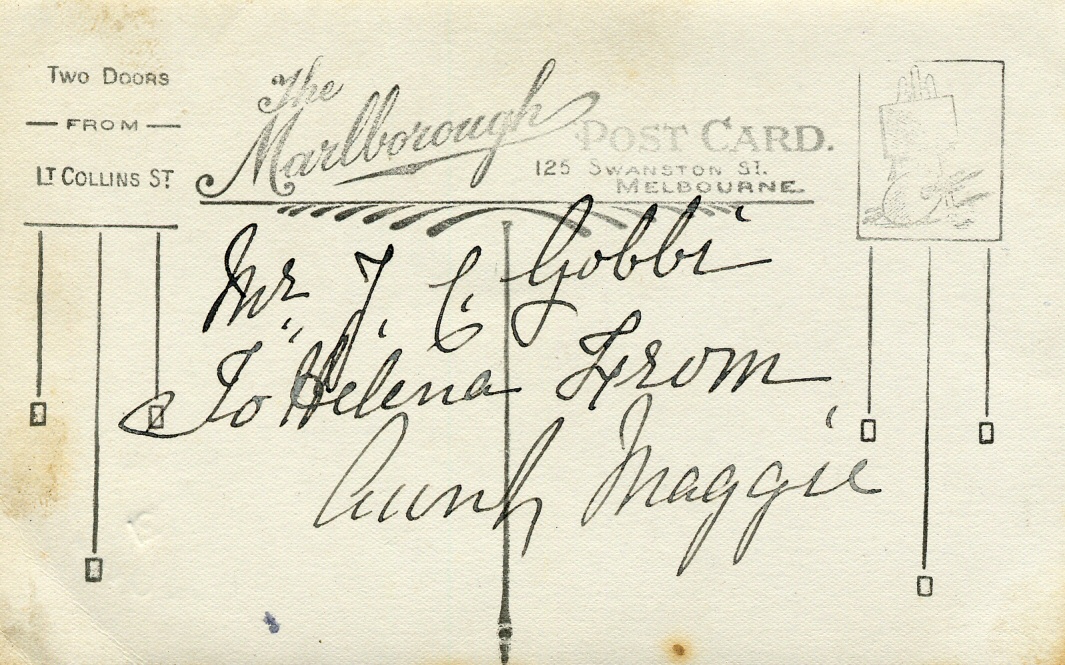 Two Doors
— FROM —
LT COLLINS ST
The
Marlborough POST CARD.
125 SWANSTON ST.
MELBOURNE.
Mr J. C. Gobbi
To Helena From
Aunt Maggie